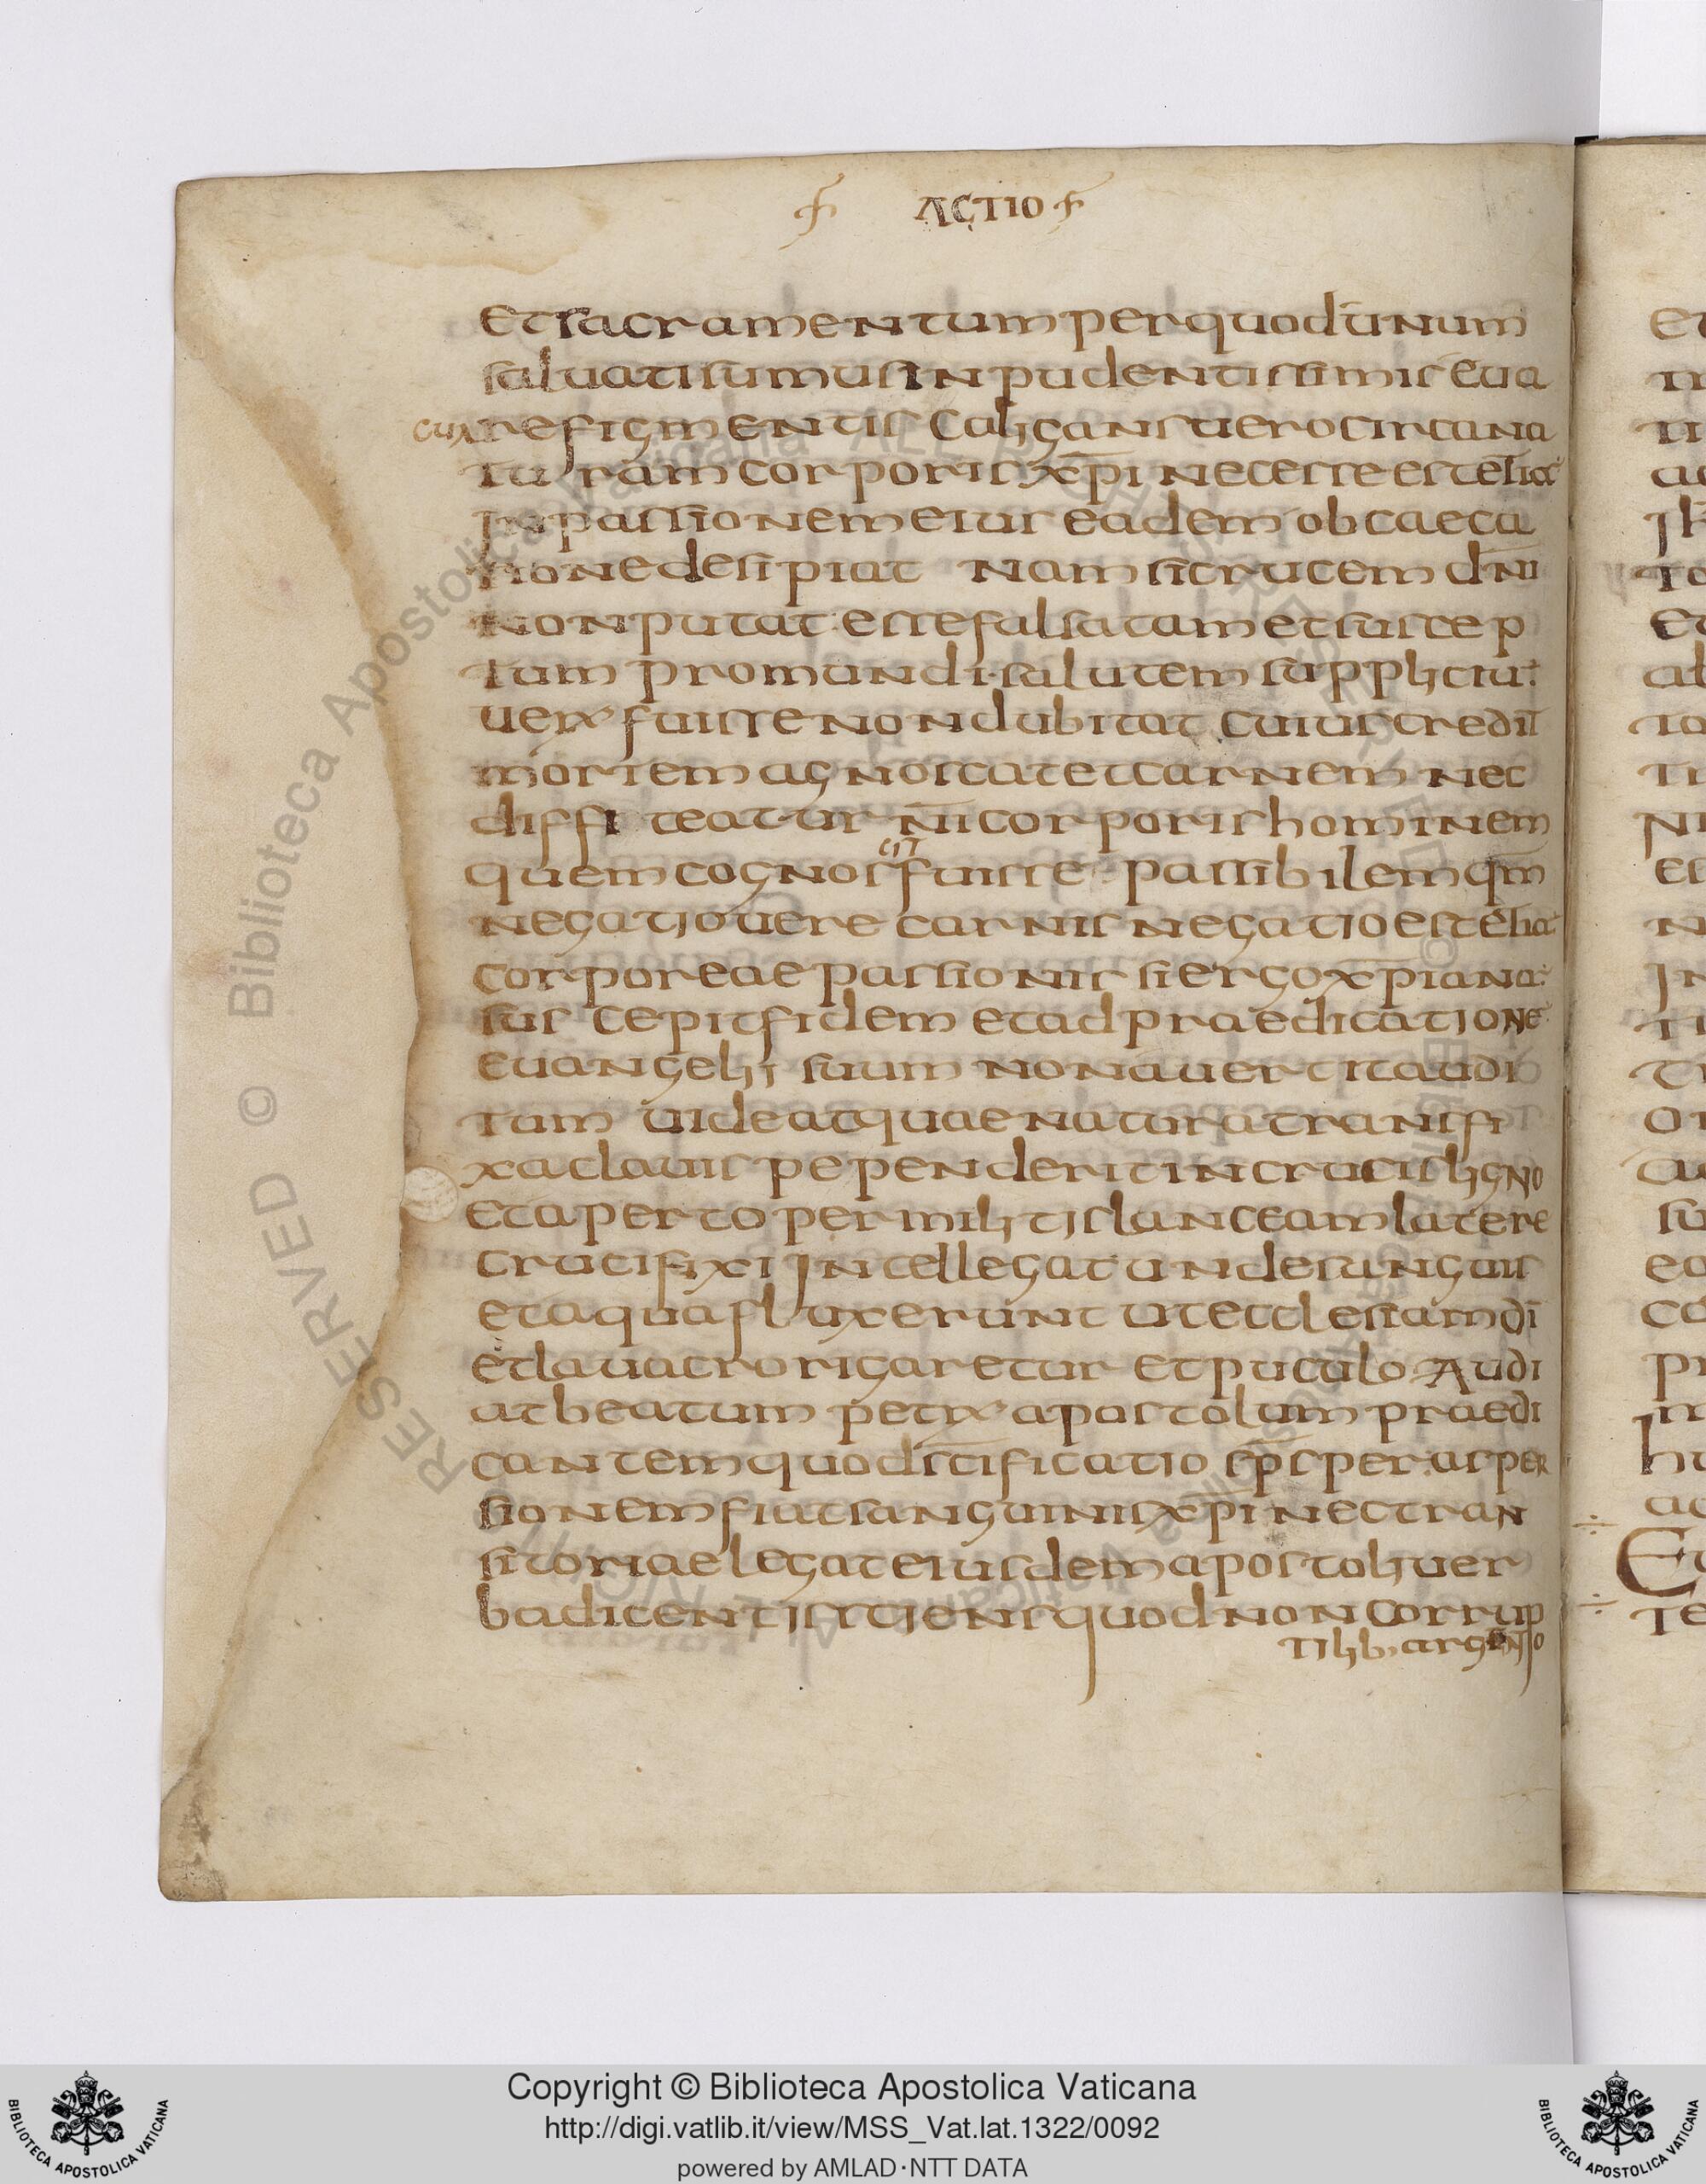 ACTIO
et sacramentum per quod unum
saluati sumus inpudentissimis eua
cux re figmentis Caligans uero circa na
turam corporis xp̄i necesse est etiā
In passionem eius eadem obcaeca
tione desipiat nam si crucem dn̄i
non putat esse falsatam et suscep
tum pro mundi salute supplicium
uerum fuisse non dubitat cuius credit
mortem agnoscat et carnem nec
diffiteatur n̄ri corporis hominem
quem cognoscit fuisse passibilem qm̄
negatio uere carnis negatio est etiā
corporeae passionis si ergo xp̄iana
suscepit fidem et ad praedicatione
euangelii suum non auertit audi
tum uideat quae natura transfi
xa clauis pependerit in crucis ligno
et aperto per militis lanceam latere
crucifixi Intellegat unde sanguis
et aqua fluxerunt ut ecclesiam dī
et lauacro rigaretur et puculo Audi
at beatum petrum apostolum praedi
cantem quod sc̄ificatio sp̄s per asper
sionem fiat sanguinis xp̄i nec tran
sitoriae legat eiusdem apostoli uer
ba dicentis sciens quod non corrup
tilib. argento
Copyright © Biblioteca Apostolica Vaticana
http://digi.vatlib.it/view/MSS_Vat.lat.1322/0092
powered by AMLAD·NTT DATA